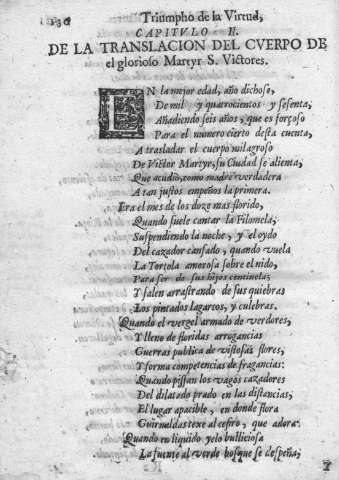 136
Triumpho de la Virtud,
CAPITVLO II.
DE LA TRANSLACION DEL CVERPO DE
el glorioso Martyr S. Victores.
EN la mejor edad, año dichoso,
De mil y quatrocientos y sesenta,
Añadiendo seis años, que es forçoso
Para el numero cierto desta cuenta,
A trasladar el cuerpo milagroso
De Victor Martyr, su Ciudad se alienta,
Que acudio, como madre verdadera
A tan justos empeños la primera.
Era el mes de los doze mas florido,
Quando suele cantar la Filomela,
Suspendiendo la noche, y el oydo
Del cazador cansado, quando vuela
La Tortola amorosa sobre el nido,
Para ser de sus hijos centinela;
Y salen arrastrando de sus quiebras
Los pintados lagartos, y culebras.
Quando el vergel armado de verdores,
Y lleno de floridas arrogancias
Guerras publica de vistosas flores,
Y forma competencias de fragancias:
Quando pissan los vagos cazadores
Del dilatado prado en las distancias,
El lugar apacible, en donde flora
Guirnaldas texe al cefiro, que adora.
Quando en liquido yelo bulliciosa
La fuente al verde bosque se despeña;
Y